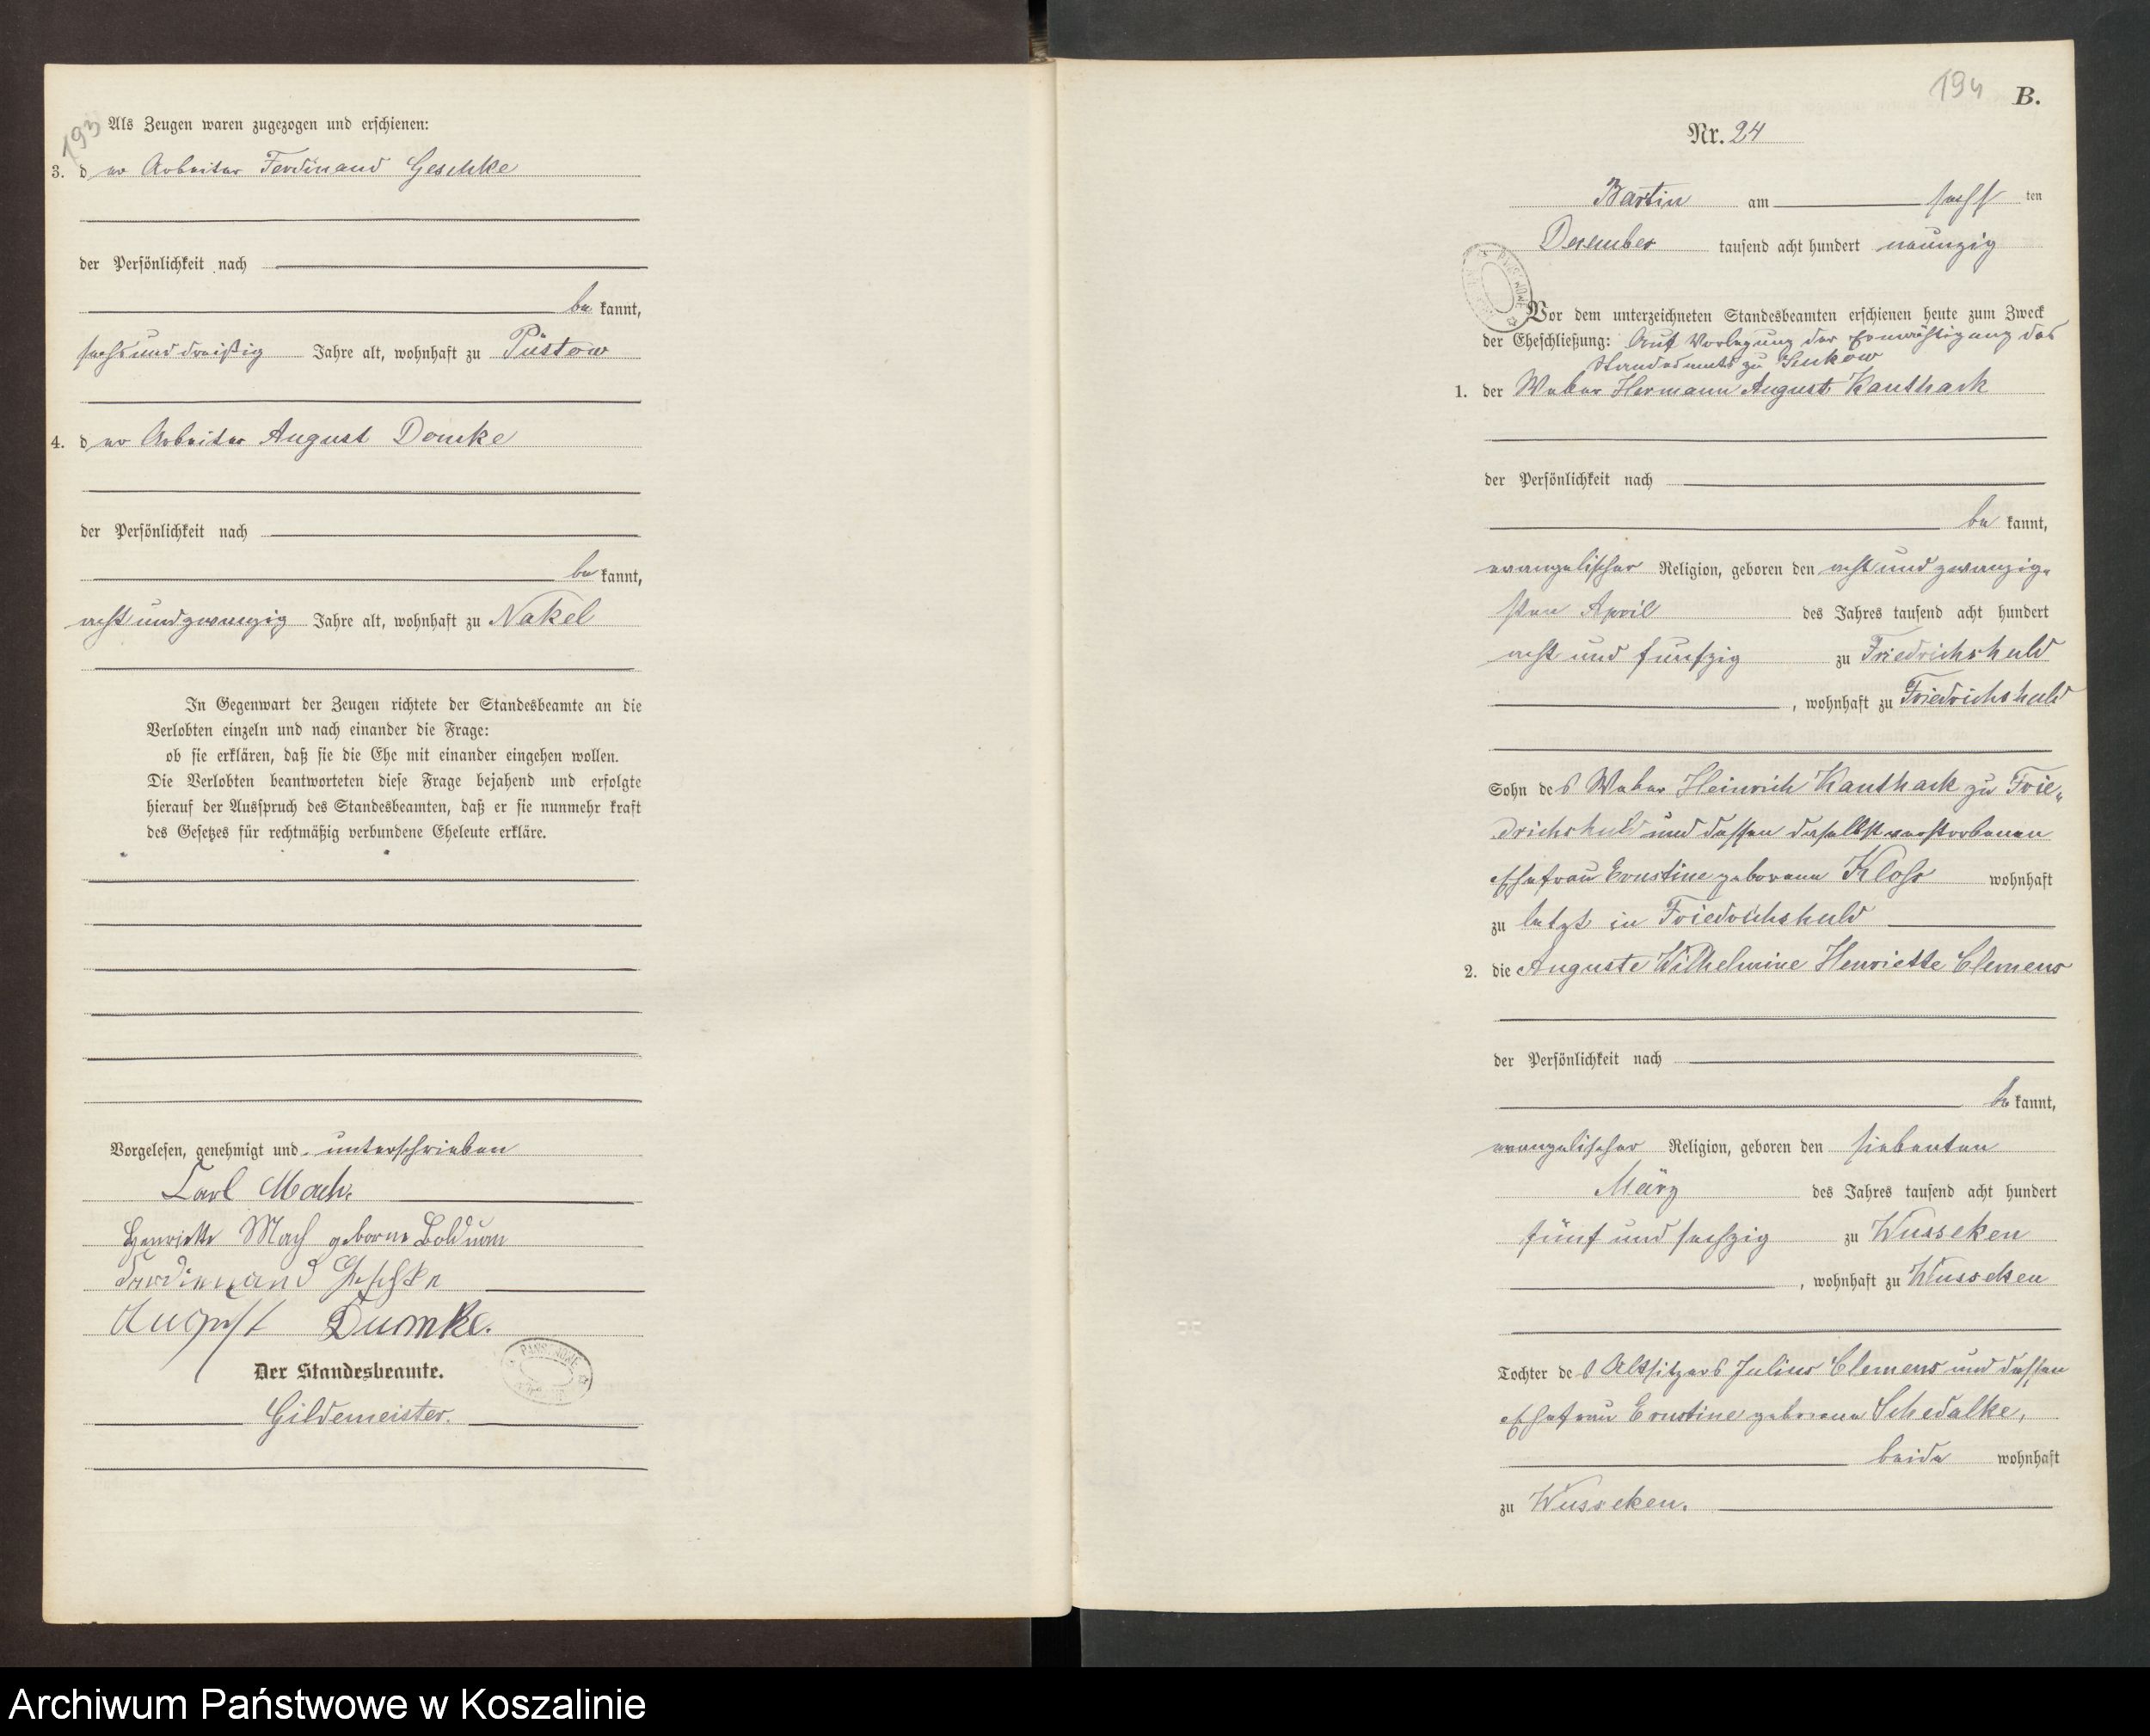 193
Als Zeugen waren zugezogen und erschienen:
3. der Arbeiter Ferdinand Geschke
der Persönlichkeit nach
be kannt,
sechs und dreißig Jahre alt, wohnhaft zu Püstow
4. der Arbeiter August Domke
der Persönlichkeit nach
be kannt,
acht und zwanzig Jahre alt, wohnhaft zu Nakel
In Gegenwart der Zeugen richtete der Standesbeamte an die
Verlobten einzeln und nach einander die Frage:
ob sie erklären, daß sie die Ehe mit einander eingehen wollen.
Die Verlobten beantworteten diese Frage bejahend und erfolgte
hierauf der Ausspruch des Standesbeamten, daß er sie nunmehr kraft
des Gesetzes für rechtmäßig verbundene Eheleute erkläre.
Vorgelesen, genehmigt und unterschrieben
Carl Mach.
Henriette Mach geborne Bolduan
Ferdienand Geschke
August Dumke.
Der Standesbeamte.
Gildemeister.
194 B.
Nr. 24
Bartin am sechs ten
Dezember tausend acht hundert neunzig
Vor dem unterzeichneten Standesbeamten erschienen heute zum Zweck
der Eheschließung: Auf Vorlegung der Ermächtigung des
Standesamts zu
1. der Weber Hermann August Kanthack
der Persönlichkeit nach
be kannt,
evangelischer Religion, geboren den acht und zwanzig-
sten April des Jahres tausend acht hundert
acht und funfzig zu Friedrichshuld
, wohnhaft zu Friedrichshuld
Sohn des Weber Heinrich Kanthack zu Frie-
drichshuld und dessen daselbst verstorbenen
Ehefrau Ernstine geborene Kloss wohnhaft
zu letzt in Friedrichshuld
2. die Auguste Wilhelmine Henriette Clemens
der Persönlichkeit nach
be kannt,
evangelischer Religion, geboren den siebenten
März des Jahres tausend acht hundert
fünf und sechzig zu Wusseken
, wohnhaft zu Wusseken
Tochter des Altsitzers Julius Clemens und dessen
Ehefrau Ernstine geborene Schedalke,
beide wohnhaft
zu Wusseken.
Archiwum Państwowe w Koszalinie